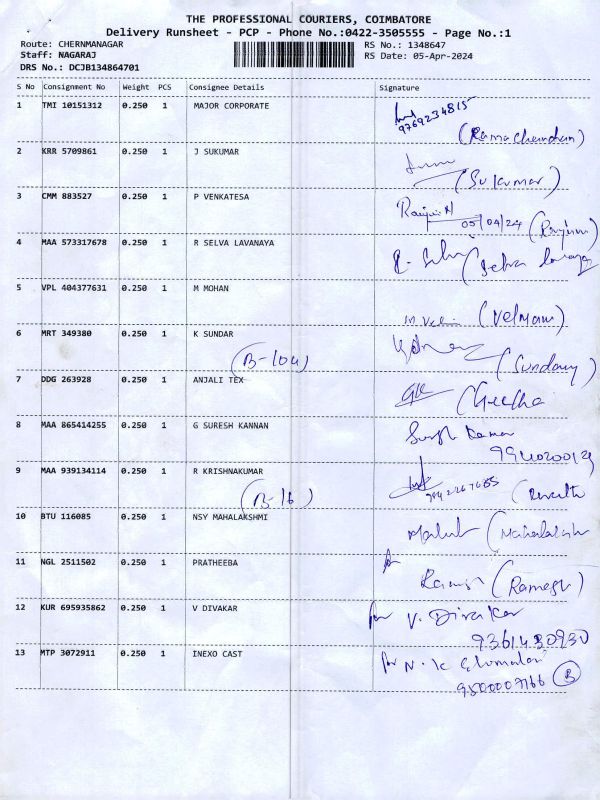 THE PROFESSIONAL COURIERS, COIMBATORE
Delivery Runsheet - PCP - Phone No.:0422-3505555 - Page No.:1
Route: CHERNMANAGAR RS No.: 1348647
Staff: NAGARAJ RS Date: 05-Apr-2024
DRS No.: DCJB134864701
S No Consignment No Weight PCS Consignee Details Signature
1 TMI 10151312 0.250 1 MAJOR CORPORATE
9769234815
2 KRR 5709861 0.250 1 J SUKUMAR
(Sukumar)
3 CMM 883527 0.250 1 P VENKATESA
05/04/24
4 MAA 573317678 0.250 1 R SELVA LAVANAYA
(Selva
5 VPL 404377631 0.250 1 M MOHAN
(Velmani)
6 MRT 349380 0.250 1 K SUNDAR
(B-104)
7 DDG 263928 0.250 1 ANJALI TEX
(Geetha
8 MAA 865414255 0.250 1 G SURESH KANNAN
9 MAA 939134114 0.250 1 R KRISHNAKUMAR
(B-16)
10 BTU 116085 0.250 1 NSY MAHALAKSHMI
11 NGL 2511502 0.250 1 PRATHEEBA
for
(Ramesh)
12 KUR 695935862 0.250 1 V DIVAKAR
for V. Divakar
9361430930
13 MTP 3072911 0.250 1 INEXO CAST
for N.K
9500007166 B